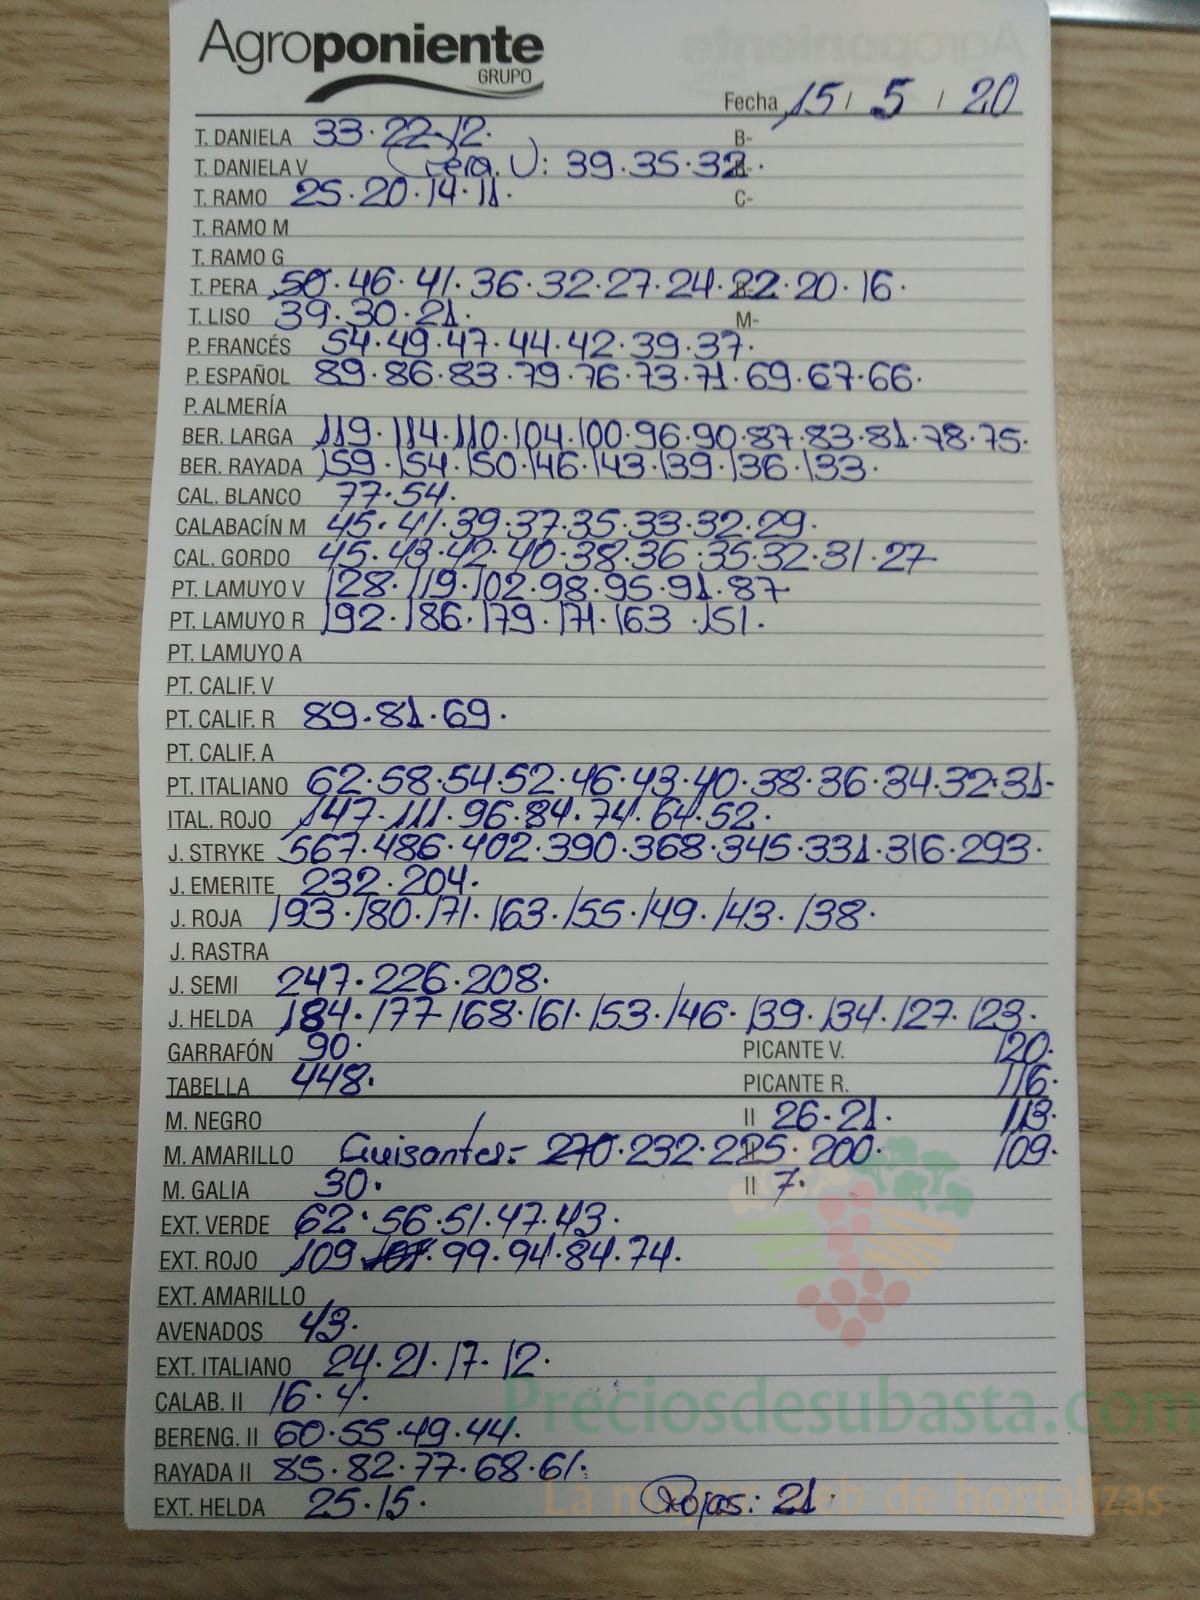 Agroponiente
GRUPO
Fecha 15 / 5 / 20
T. DANIELA 33·22·12· B-
T. DANIELA V (Pera V): 39·35·32·
T. RAMO 25·20·14·11· C-
T. RAMO M
T. RAMO G
T. PERA 50·46·41·36·32·27·24·22·20·16·
T. LISO 39·30·21· M-
P. FRANCÉS 54·49·47·44·42·39·37·
P. ESPAÑOL 89·86·83·79·76·73·71·69·67·66·
P. ALMERÍA
BER. LARGA 119·114·110·104·100·96·90·87·83·81·78·75·
BER. RAYADA 159·154·150·146·143·139·136·133·
CAL. BLANCO 77·54·
CALABACÍN M 45·41·39·37·35·33·32·29·
CAL. GORDO 45·43·42·40·38·36·35·32·31·27
PT. LAMUYO V 128·119·102·98·95·91·87
PT. LAMUYO R 192·186·179·171·163·151·
PT. LAMUYO A
PT. CALIF. V
PT. CALIF. R 89·81·69·
PT. CALIF. A
PT. ITALIANO 62·58·54·52·46·43·40·38·36·34·32·31·
ITAL. ROJO 147·111·96·84·74·64·52·
J. STRYKE 567·486·402·390·368·345·331·316·293·
J. EMERITE 232·204·
J. ROJA 193·180·171·163·155·149·143·138·
J. RASTRA
J. SEMI 247·226·208·
J. HELDA 184·177·168·161·153·146·139·134·127·123·
GARRAFÓN 90· PICANTE V. 120·
TABELLA 448· PICANTE R. 116·
M. NEGRO II 26·21· 113·
M. AMARILLO Guisantes= 270·232·225·200· 109·
M. GALIA 30· II 7·
EXT. VERDE 62·56·51·47·43·
EXT. ROJO 109 99·94·84·74·
EXT. AMARILLO
AVENADOS 43·
EXT. ITALIANO 24·21·17·12·
CALAB. II 16·4·
Preciosdesubasta.com
BERENG. II 60·55·49·44·
RAYADA II 85·82·77·68·61·
EXT. HELDA 25·15· Rojas: 21·
La web de hortalizas